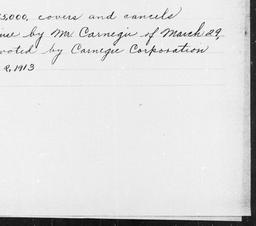 5,000, covers and cancels
by Mr. Carnegie of March 29,
voted by Carnegie Corporation
2, 1913